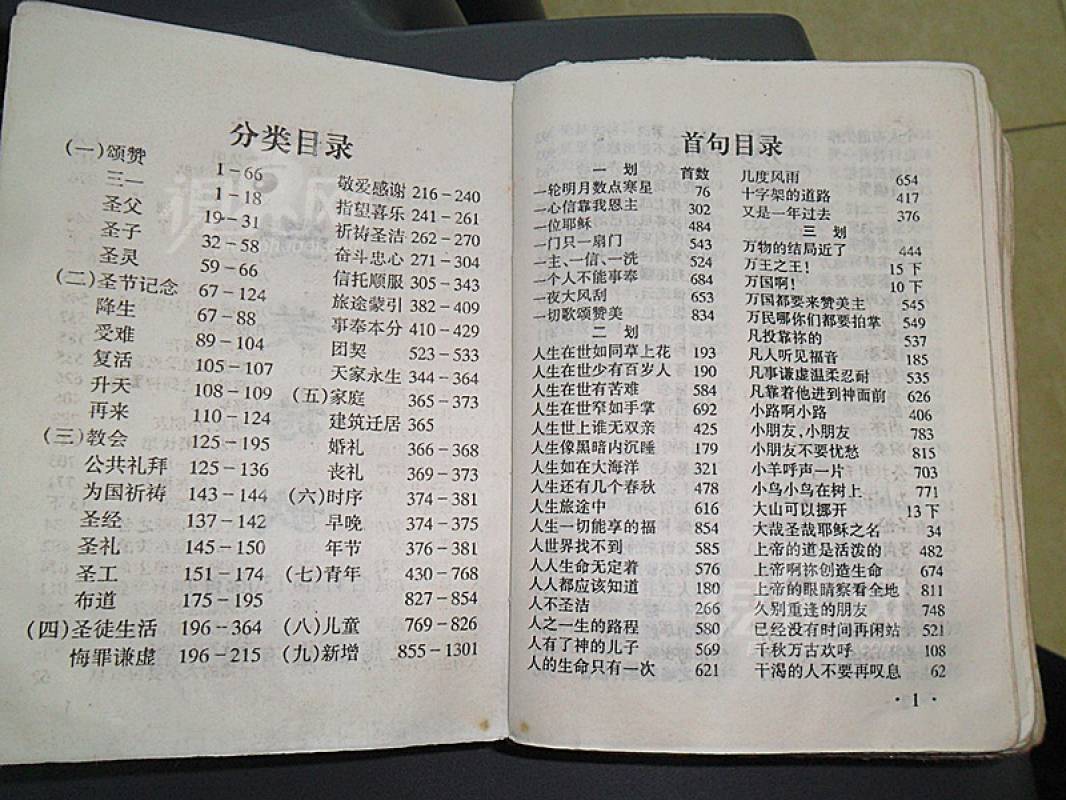 分类目录
(一)颂赞 1-66
三一 1-18
圣父 19-31
圣子 32-58
圣灵 59-66
(二)圣节记念 67-124
降生 67-88
受难 89-104
复活 105-107
升天 108-109
再来 110-124
(三)教会 125-195
公共礼拜 125-136
为国祈祷 143-144
圣经 137-142
圣礼 145-150
圣工 151-174
布道 175-195
(四)圣徒生活 196-364
悔罪谦虚 196-215
敬爱感谢 216-240
指望喜乐 241-261
祈祷圣洁 262-270
奋斗忠心 271-304
信托顺服 305-343
旅途蒙引 382-409
事奉本分 410-429
团契 523-533
天家永生 344-364
(五)家庭 365-373
建筑迁居 365
婚礼 366-368
丧礼 369-373
(六)时序 374-381
早晚 374-375
年节 376-381
(七)青年 430-768
827-854
(八)儿童 769-826
(九)新增 855-1301
首句目录
一 划 首数
一轮明月数点寒星 76
一心信靠我恩主 302
一位耶稣 484
一门只一扇门 543
一主、一信、一洗 524
一个人不能事奉 684
一夜大风刮 653
一切歌颂赞美 834
二 划
人生在世如同草上花 193
人生在世少有百岁人 190
人生在世有苦难 584
人生在世窄如手掌 692
人生世上谁无双亲 425
人生像黑暗内沉睡 179
人生如在大海洋 321
人生还有几个春秋 478
人生旅途中 616
人生一切能享的福 854
人世界找不到 585
人人生命无定着 576
人人都应该知道 180
人不圣洁 266
人之一生的路程 580
人有了神的儿子 569
人的生命只有一次 621
几度风雨 654
十字架的道路 417
又是一年过去 376
三 划
万物的结局近了 444
万王之王! 15下
万国啊! 10下
万国都要来赞美主 545
万民哪你们都要拍掌 549
凡投靠祢的 537
凡人听见福音 185
凡事谦虚温柔忍耐 535
凡靠着他进到神面前 626
小路啊小路 406
小朋友,小朋友 783
小朋友不要忧愁 815
小羊呼声一片 703
小鸟小鸟在树上 771
大山可以挪开 13下
大哉圣哉耶稣之名 34
上帝的道是活泼的 482
上帝啊祢创造生命 674
上帝的眼睛察看全地 811
久别重逢的朋友 748
已经没有时间再闲站 521
千秋万古欢呼 108
干渴的人不要再叹息 62
·1·